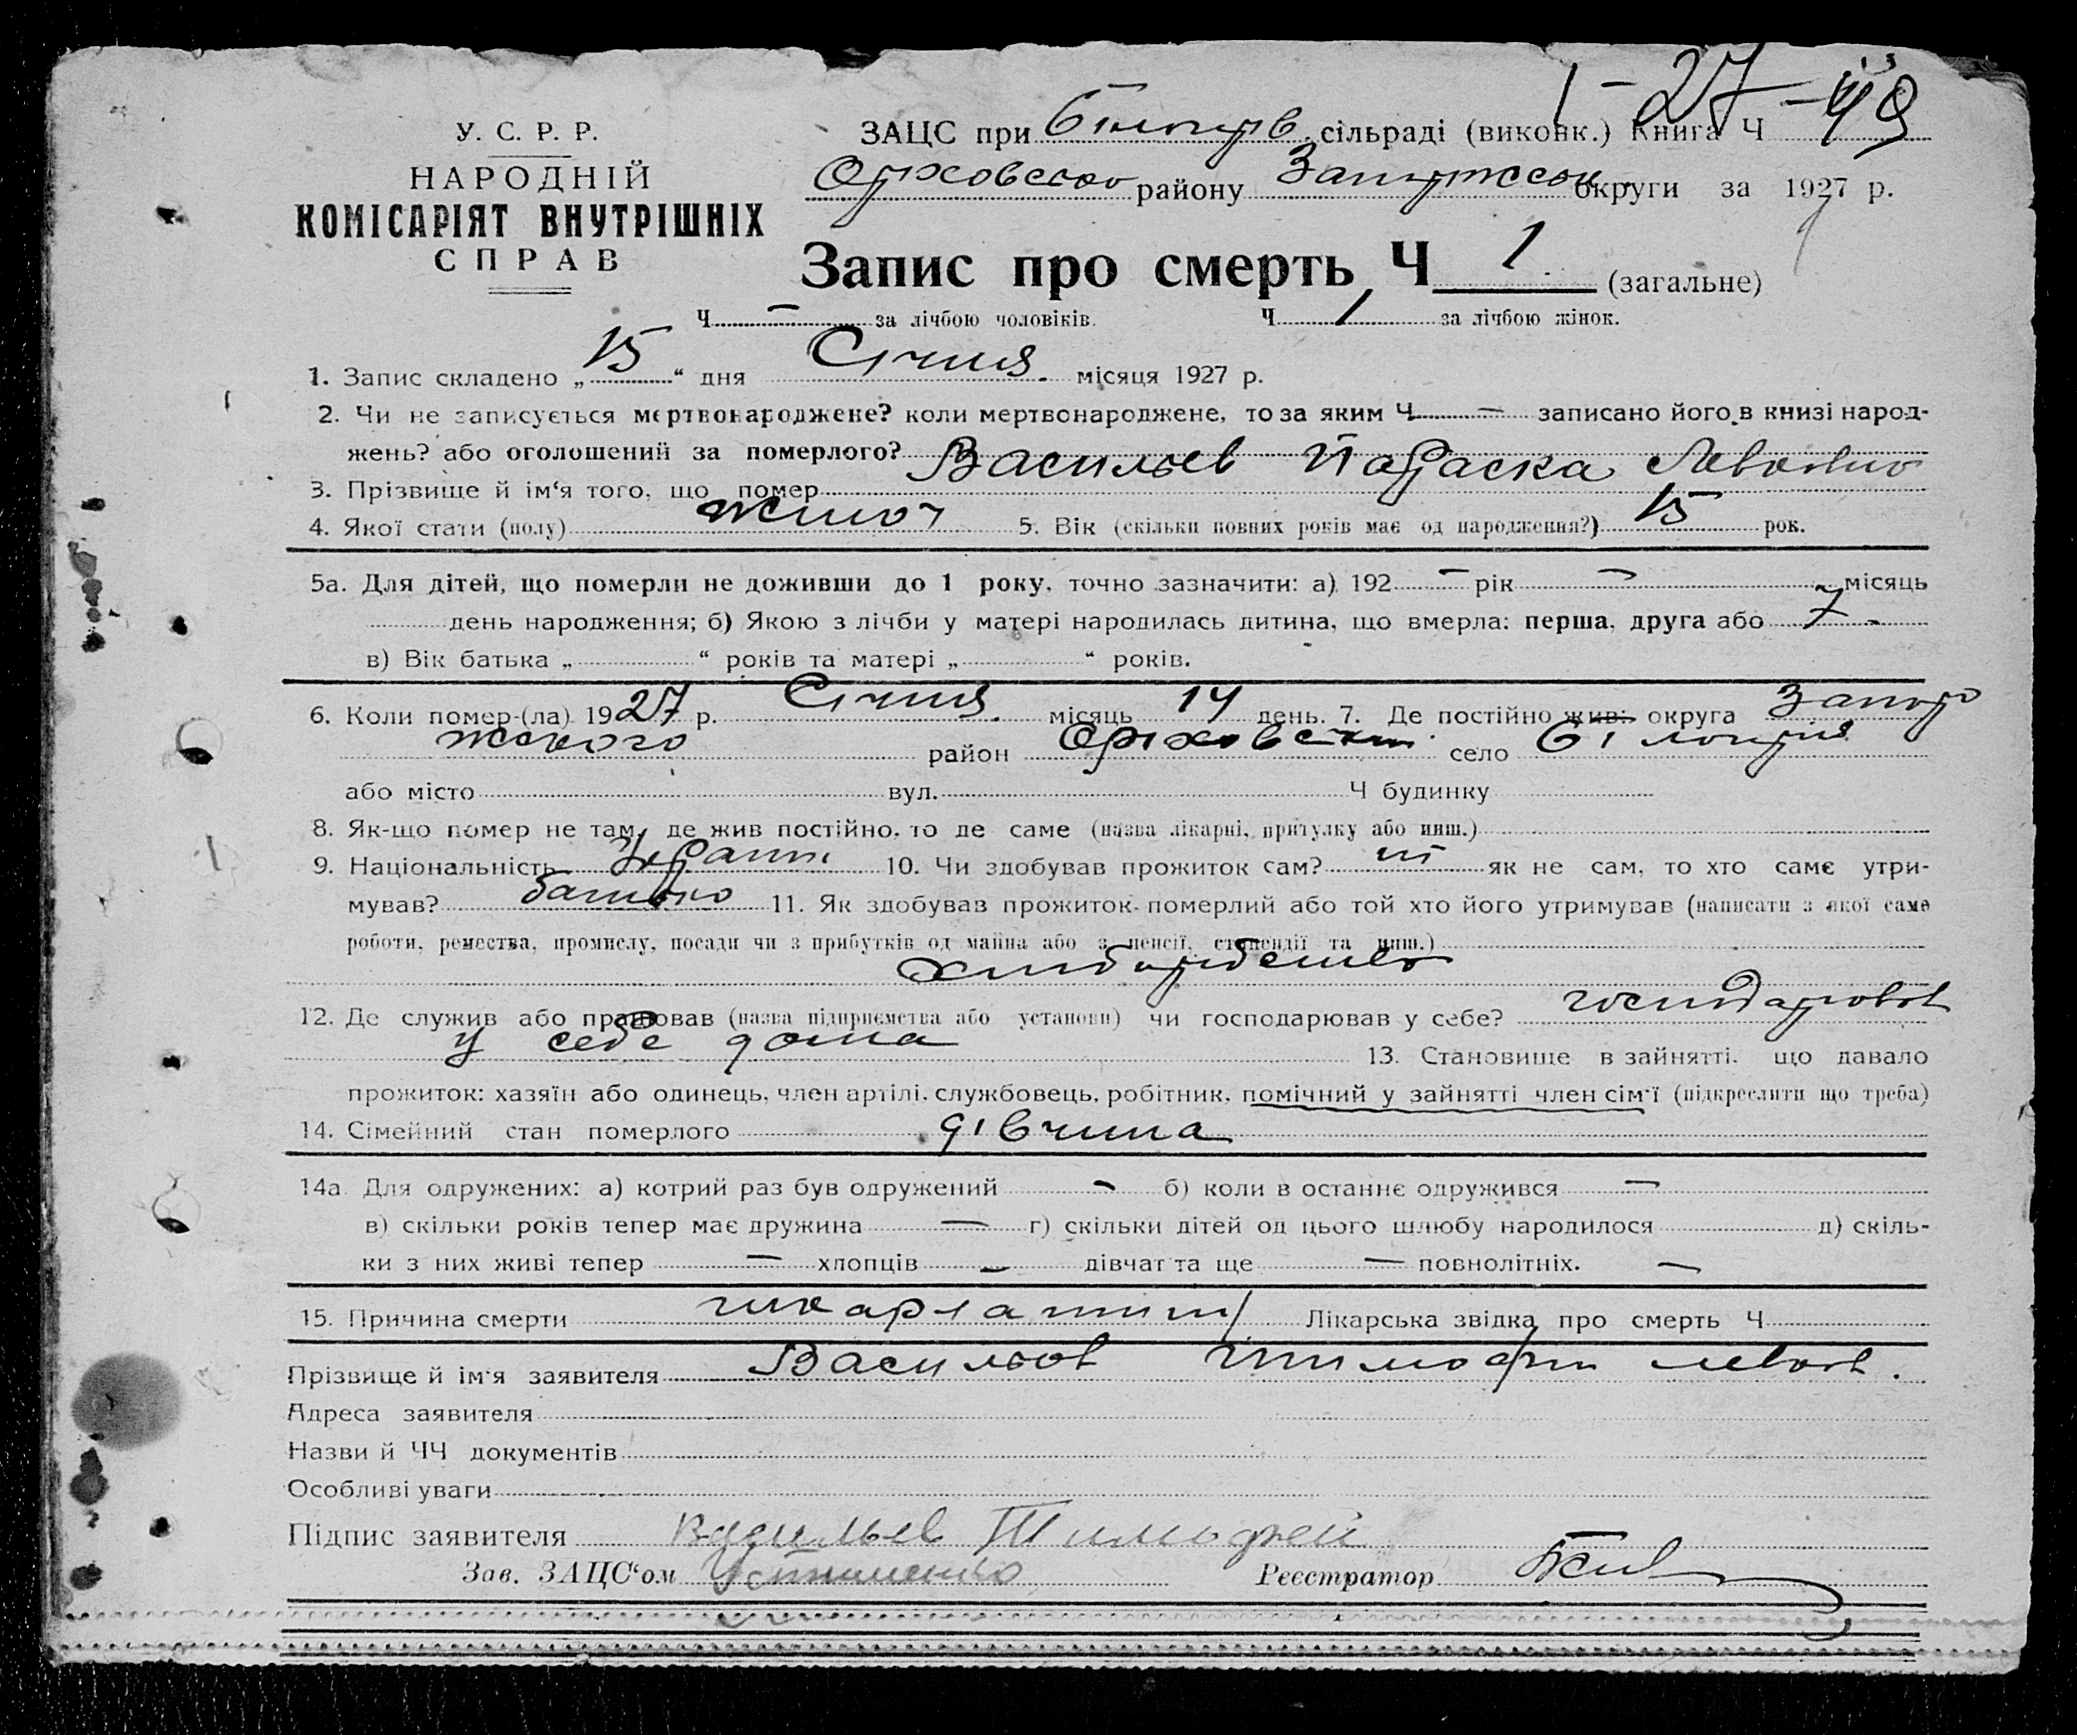 1-27-49
У. С. Р. Р.
ЗАЦС при Білогірв. сільраді (виконк.) Книга Ч
НАРОДНІЙ
Оріховського району Запоріжської округи за 1927 р.
КОМІСАРІЯТ ВНУТРІШНІХ
СПРАВ
Запис про смерть Ч 1 (загальне)
Ч — за лічбою чоловіків. Ч 1 за лічбою жінок.
1. Запис складено „15“ дня Січня місяця 1927 р.
2. Чи не записується мертвонароджене? коли мертвонароджене, то за яким Ч — записано його в книзі народ-
жень? або оголошений за померлого?
3. Прізвище й ім‘я того, що помер Васильев Параска Левовно
4. Якої стати (полу) жиноч 5. Вік (скільки повних років має од народження?) 15 рок.
5а. Для дітей, що померли не доживши до 1 року, точно зазначити: а) 192 — рік — місяць
день народження; б) Якою з лічби у матері народилась дитина, що вмерла: перша, друга або 7 -
в) Вік батька „ “ років та матері „ “ років.
6. Коли помер-(ла) 1927 р. Січня місяць 14 день. 7. Де постійно жив: округа Запорі
жського район Оріховський село Білогірья
або місто вул. Ч будинку
8. Як-що помер не там, де жив постійно, то де саме (назва лікарні, притулку або инш.)
9. Національність Украін. 10. Чи здобував прожиток сам? ні як не сам, то хто саме утри-
мував? батько 11. Як здобував прожиток померлий або той хто його утримував (написати з якої саме
роботи, ремества, промислу, посади чи з прибутків од майна або з пенсії, стипендії та инш.)
хліборобство
12. Де служив або працював (назва підприємства або установи) чи господарював у себе? господарював
у себе дома 13. Становище в зайнятті, що давало
прожиток: хазяїн або одинець, член артілі, службовець, робітник, помічний у зайнятті член сім‘ї (підкреслити що треба)
14. Сімейний стан померлого дівчина
14а Для одружених: а) котрий раз був одружений - б) коли в останнє одружився —
в) скільки років тепер має дружина — г) скільки дітей од цього шлюбу народилося д) скіль-
ки з них живі тепер — хлопців — дівчат та ще — повнолітніх. —
15. Причина смерти Лікарська звідка про смерть Ч
Прізвище й ім‘я заявителя Васильов Тимофій Левов.
Адреса заявителя
Назви й ЧЧ документів
Особливі уваги
Підпис заявителя Васильев Тимофей
Зав. ЗАЦС‘ом Устименко Реєстратор